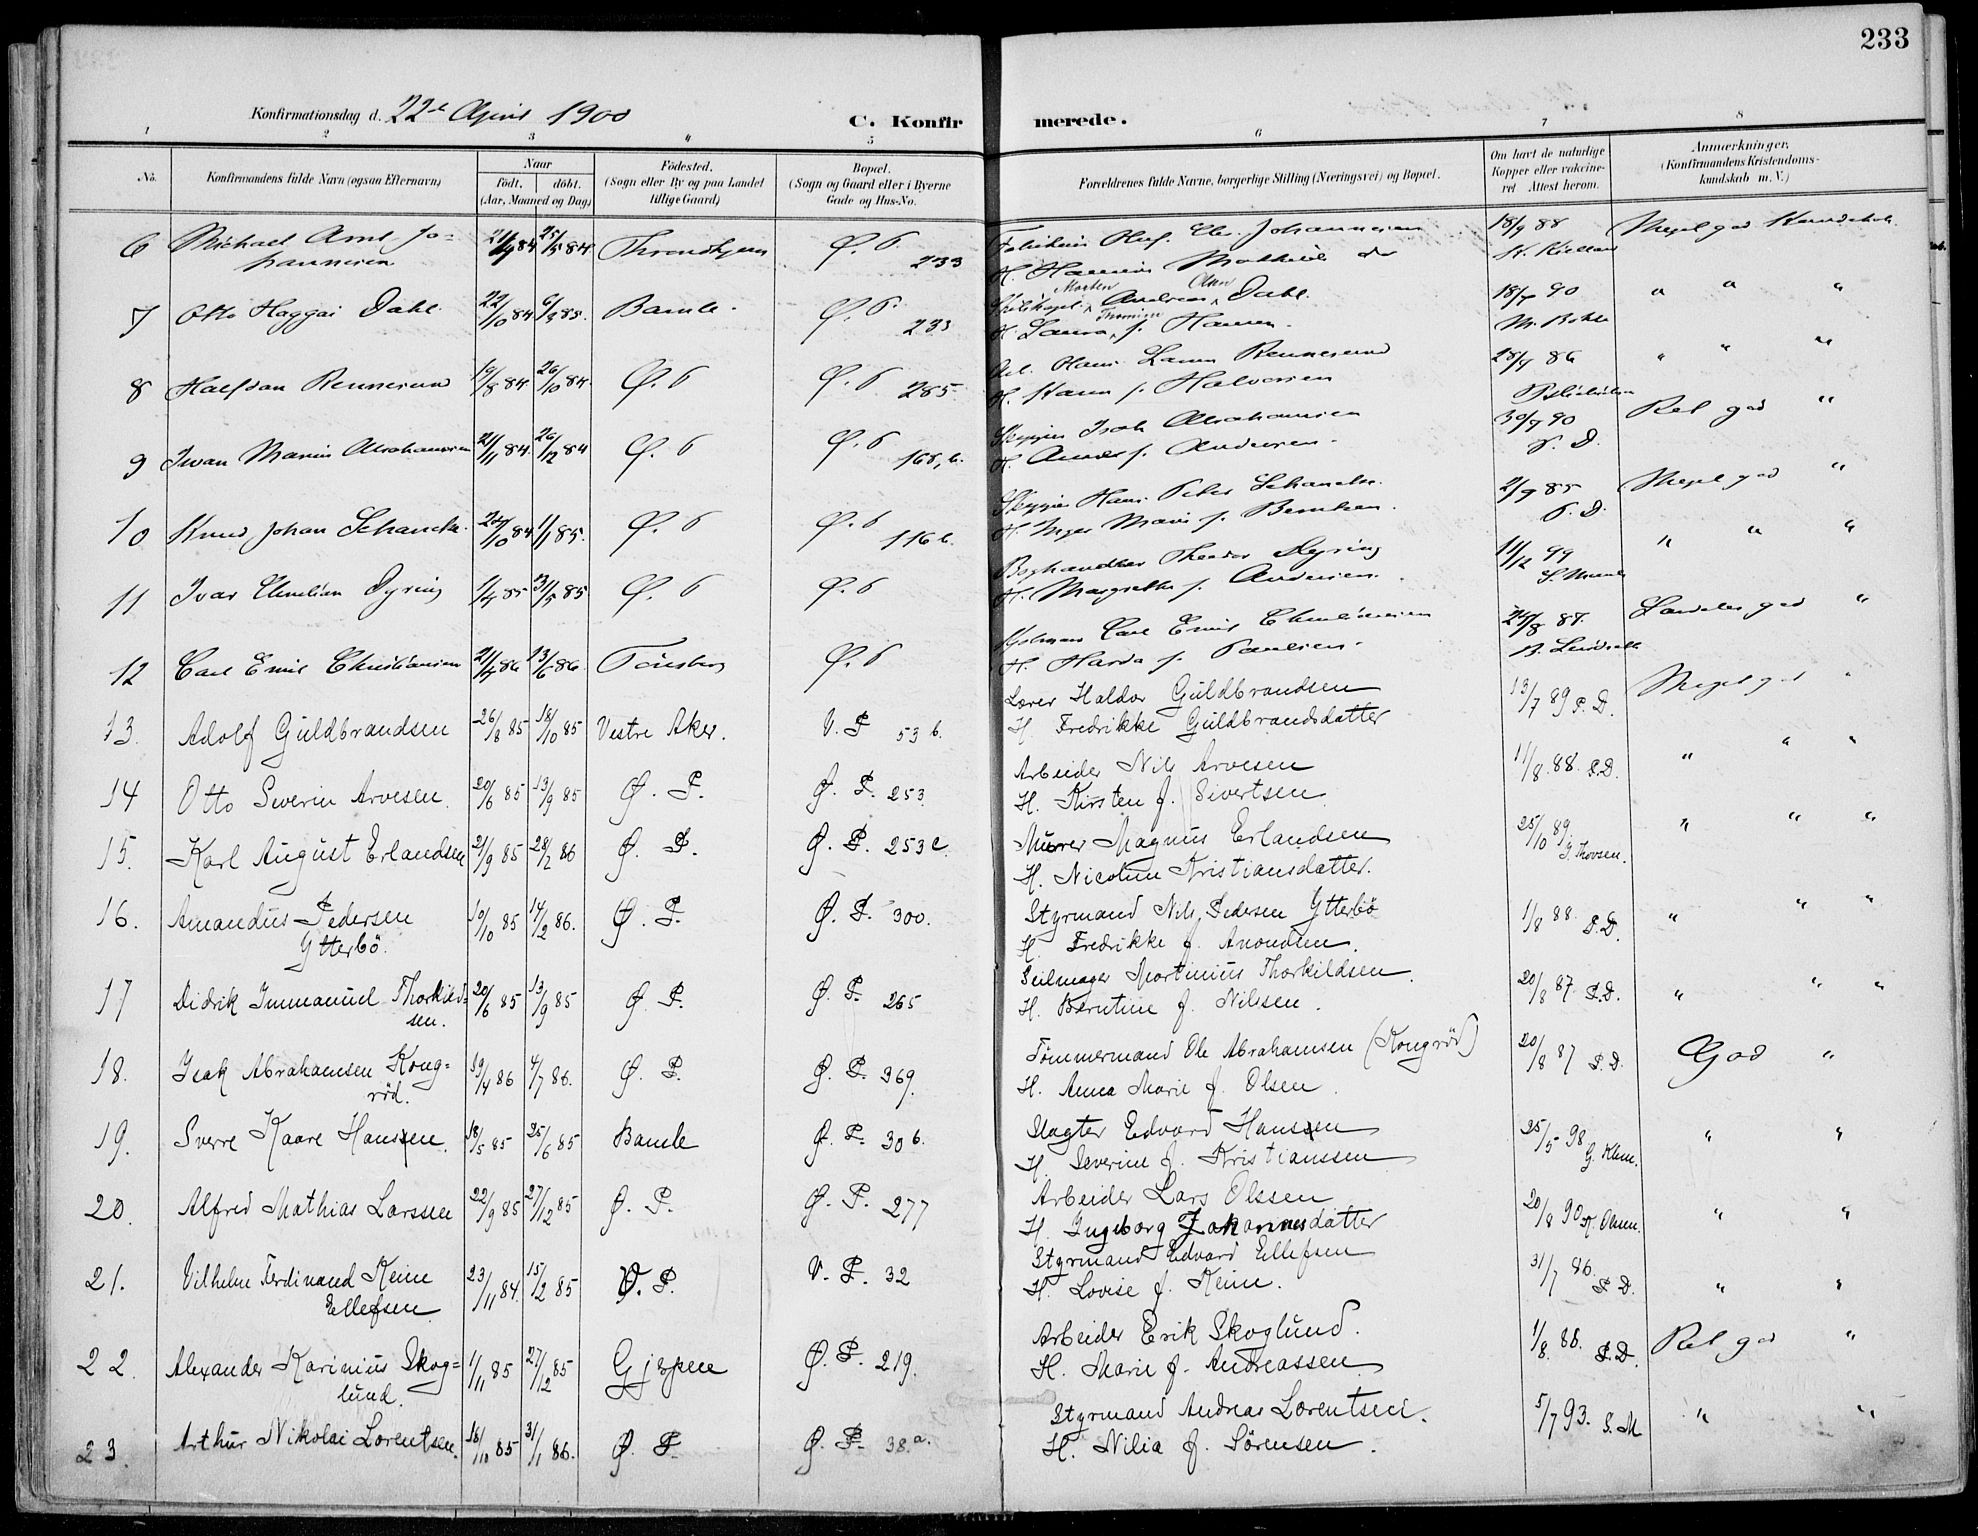 233
Konfirmationsdag d. 22de April 1900 C. Konfirmerede.
1 2 3 4 5 6 7 8
No. Konfirmandens fulde Navn (ogsaa Efternavn) Naar født. døbt. (Aar, Maaned og Dag) Fødested. (Sogn eller By og paa Landet tillige Gaard) Bopæl. (Sogn og Gaard eller i Byerne Gade og Hus-No. Forældrenes fulde Navne, borgerlige Stilling (Næringsvei) og Bopæl. Om havt de naturlige Kopper eller vakcineret Attest herom. Anmærkninger. (Konfirmandens Kristendomskundskab m. V.)
6 Michael Jo= 25/5 84 Throndhjem Ø. P. Johannesen 18/9 88 Meget god Kundskab
hannesen 233 H.
7 Otto Haggai Dahl 22/10 84 Bamle. Ø. P. Morten Andreas Olsen Dahl. 18/7 90 " " "
233 H. Laura f. Hansen.
8 Halfdan Rennesund 19/8 84 26/10 84 Ø. P Ø. P 285 Hans Rennesund 28/7 86 " " "
H. f. Halvorsen
9 Ivan Marius Abrahamsen 21/11 84 26/12 84 Ø. P Ø. P 168,b. Isak Abrahamsen 30/7 90 Rel god "
H. f. Andersen. P. D.
10 Knud Johan Schanche. 24/10 84 1/1 85. Ø. P Ø. P 116 b. Hans Peter Schanche 2/9 85 Meget god "
H. Inger Marie f. Berntsen. P. D.
11 Ivar Dyring 1/4 85 31/5 85 Ø. P Ø. P Boghandler Theodor Dyring 11/12 99 " " "
H. Margrethe f. Andersen.
12 Carl Emil Christiansen 21/4 86 13/6 86. Tønsberg Ø. P Carl Emil Christiansen 24/8 87. god "
H. f. Paulsen.
13. Adolf Guldbrandsen 26/8 85 18/10 85 Vestre Aker. V. P 53 b. Lærer Haldor Guldbrandsen 13/7 89 P. D. Meget god "
H. Fredrikke Guldbrandsdatter
14 Otto Severin Arvesen. 20/6 85 13/9 85 Ø. P. Ø. P. 253 Arbeider Nils Arvesen 11/8. 88. P.D. " " "
H. Kirsten f. Sivertsen
15. Karl August Erlandsen 21/9 85 28/2 86 Ø. P. Ø. P. 253 c. Murer Magnus Erlandsen 25/10 89 J. Thovsen. " " "
H. Nicoline Kristiansdatter.
16. Amandus Pedersen 10/10 85 14/2 86. Ø. P. Ø. P. 300. Styrmand Nils Pedersen Ytterbö 1/8 88. P.D. " " "
Ytterbö. H. Fredrikke f. Anondsen.
17 Didrik Immanuel Thorkild= 20/6 85 13/9 85 Ø P. Ø. P. 265 Seilmager Mortinius Thorkildsen. 20/8 87. P.D. " " "
sen. H. Berntine f. Nilssen.
18. Isak Abrahamsen Kong= 19/4 86 4/7 86. Ø. P. Ø. P. 369. Tømmermand Ole Abrahamsen (Kongrød) 20/8 87 P.D. God "
rød. H. Anna Marie f. Olsen.
19. Sverre Kaare Hanssen. 18/5 85 25/6 85 Bamle Ø. P. 306. Slagter Edvard Hanssen 25/5 98 G. Klem. " "
H. Severine f. Kristianssen
20. Alfred Mathias Larssen 22/9 85 27/12 85 Ø. P. Ø. P. 277 Arbeider Lars Olssen 20/8 90 K. Olsen. " "
H. Ingeborg Johannesdatter
21. Vilhelm Ferdinand Keim 23/11 84. 15/2 85 V. P. V. P. 32 Styrmand Edvard Ellefsen 31/7 86. P.D. " "
Ellefsen H. Lovise f. Keim.
22. Alexander Karinius Skog= 1/11 85 27/12 85 Gjerpen Ø. P. 219. Arbeider Erik Skoglund. 1/8. 88. P.D. Rel god "
lund. H. Marie f. Andreassen
23. Arthur Nikolai Lorentsen. 18/10 85 31/1 86. Ø. P. Ø. P. 38.a. Styrmand Andreas Lorentsen. 5/7 93. S.M " "
H. Nilia f. Sörensen.